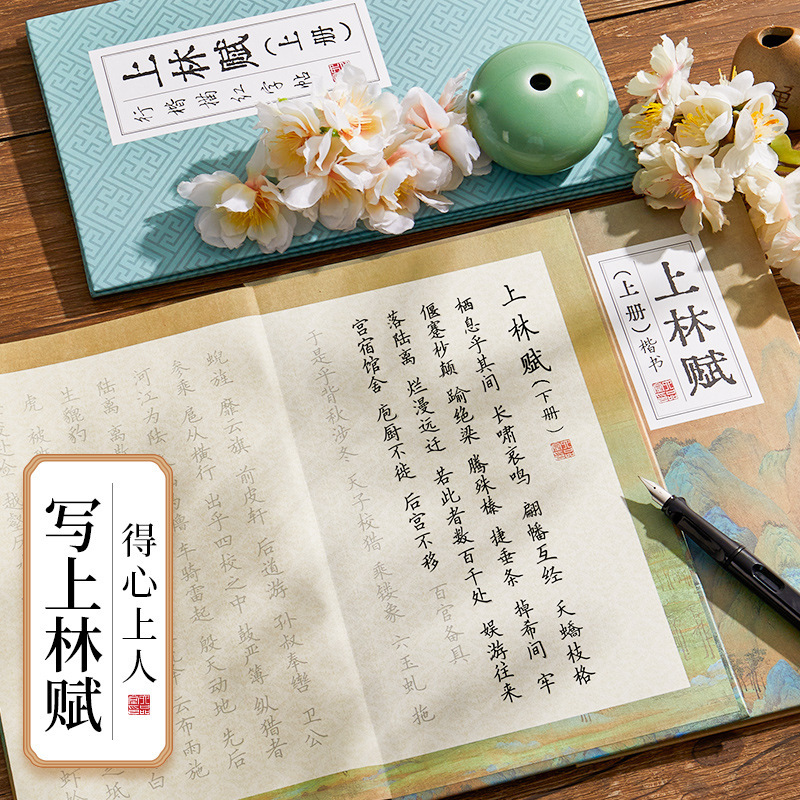 上林赋（上册）
行楷描红字帖
上林赋
（上册）楷书
上林赋（下册）
栖息乎其间 长啸哀鸣 翩幡互经 夭蟜枝格
偃蹇杪颠 踰绝梁 腾殊榛 捷垂条 掉希间 牢
落陆离 烂漫远迁 若此者数百千处 娱游往来
宫宿馆舍 庖厨不徙 后宫不移 百官备具
于是乎背秋涉冬 天子校猎 乘镂象 六玉虬 拖
蜺旌 靡云旗 前皮轩 后道游 孙叔奉辔 卫公
参乘 扈从横行 出乎四校之中 鼓严簿 纵猎者
河江为阹 橹 车骑雷起 殷天动地 先后
陆离 离 云布雨施
生貔豹 白
虎 被
得心上人
写上林赋